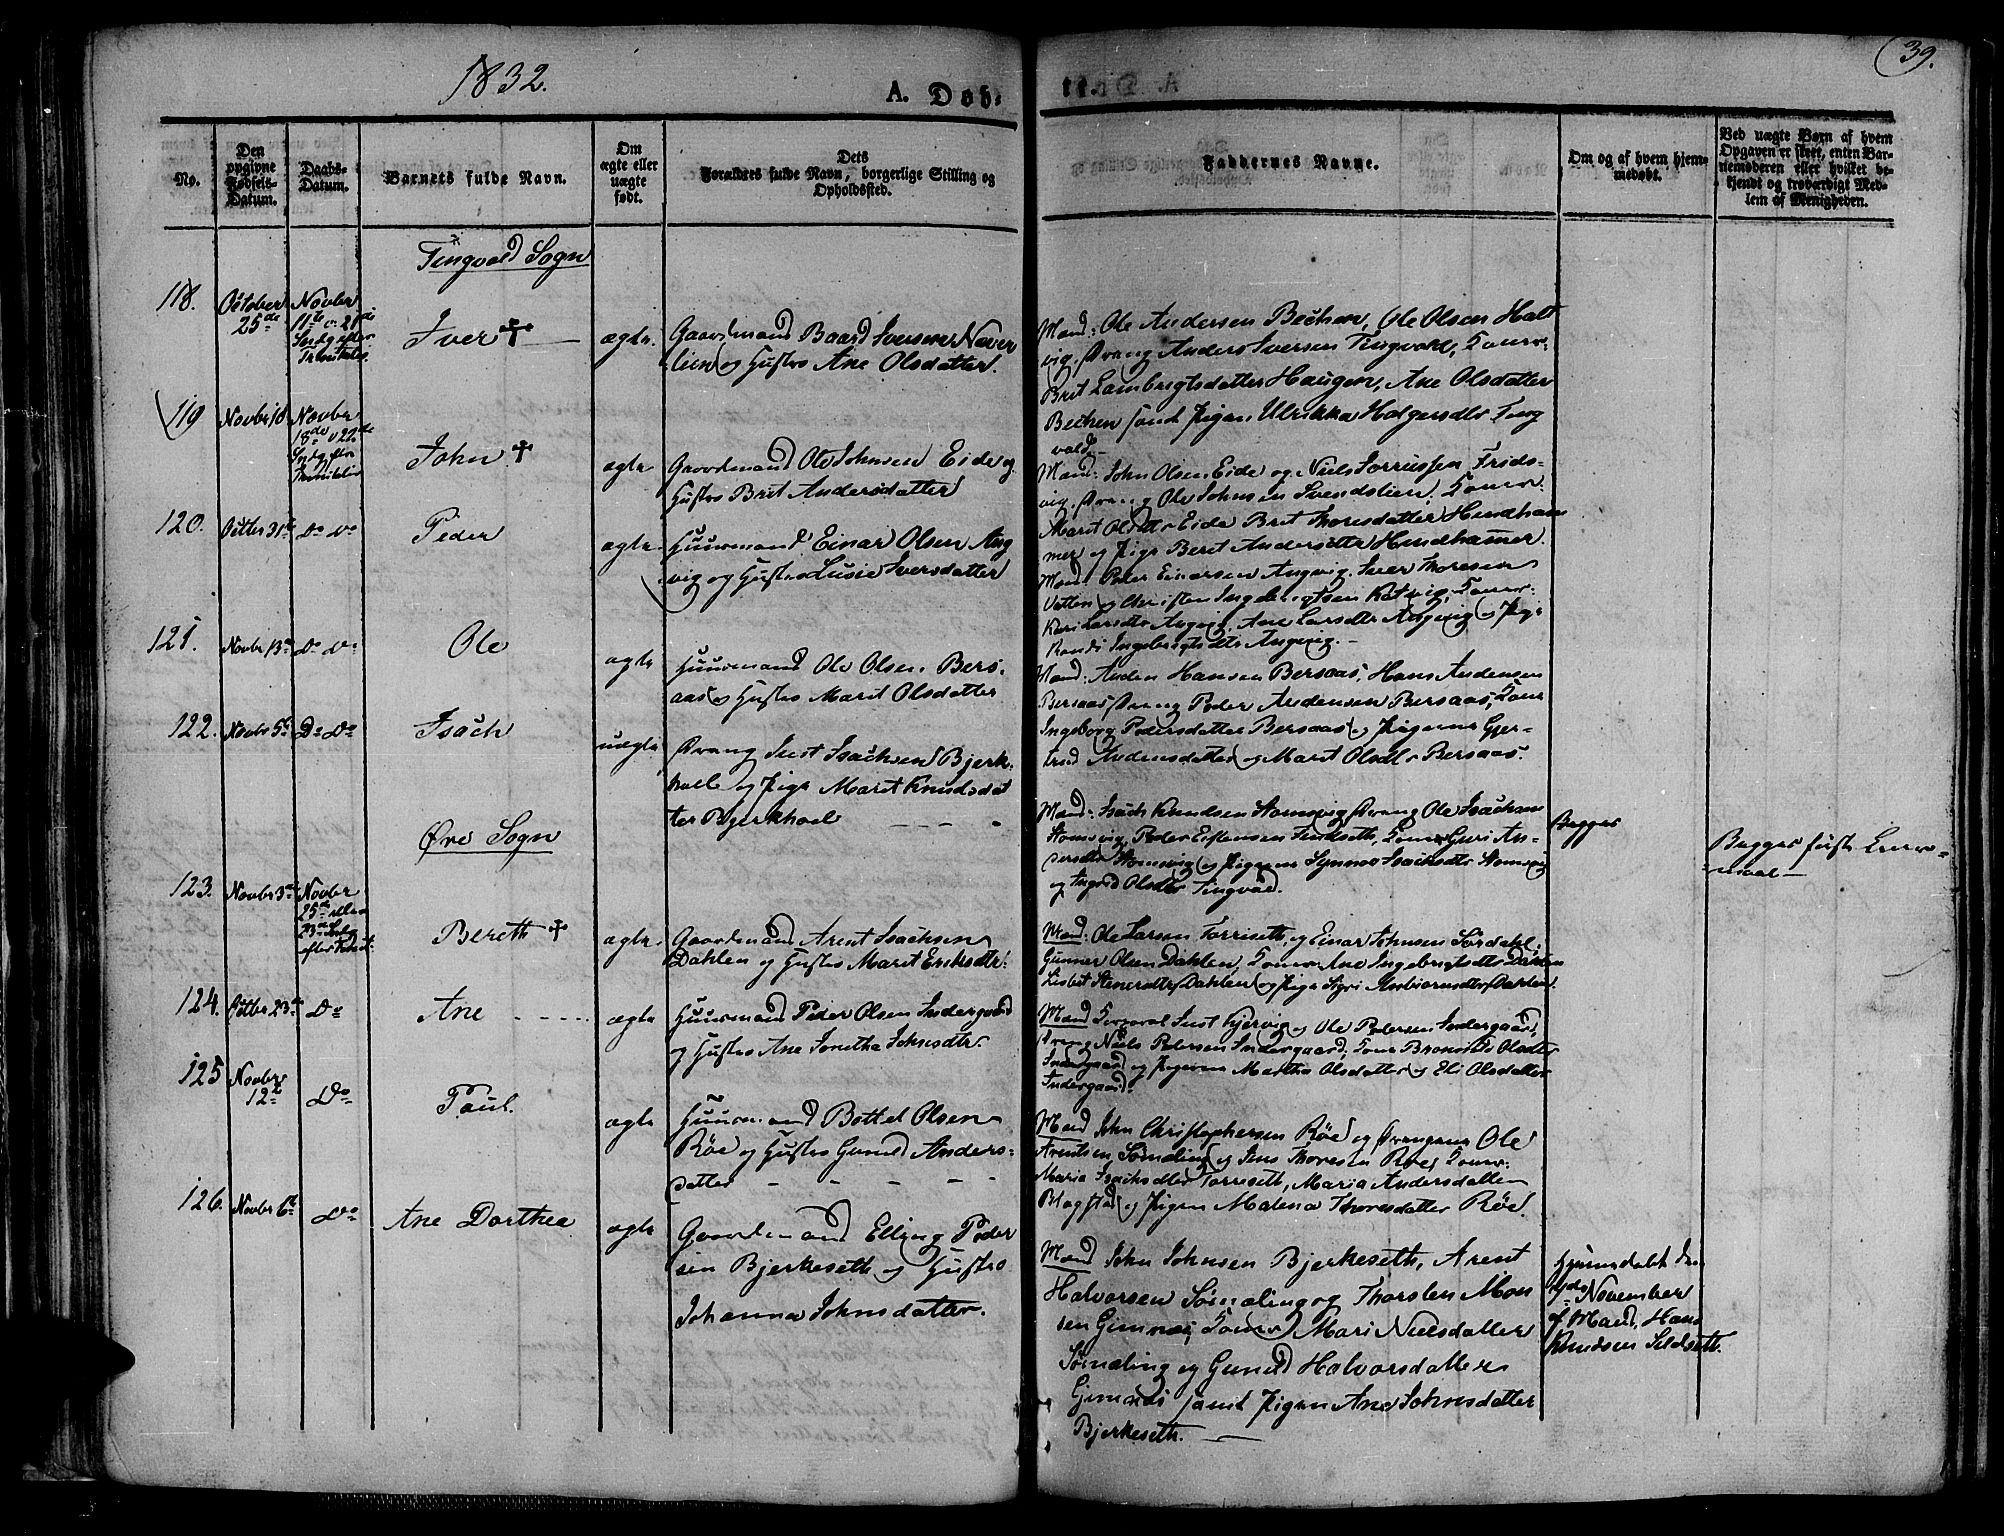 1832.
A. Døb-
39.
No.
Den opgivne Fødsels-Datum.
Daabs-Datum.
Barnets fulde Navn.
Om ægte eller uægte født.
Dets Forældres fulde Navn, borgerlige Stilling og Opholdssted.
Faddernes Navne.
Om og af hvem hjemmedøbt.
Ved uægte Børn af hvem Opgaven er skeet, enten Barnemoderen eller hvilket bekjendt og troværdigt Medlem af Menigheden.
Tingvold Sogn
118.
October 25de
Novbr 11te 21de Sndg efter Trinitatis
Iver
ægte.
Gaardmand Baard Iversen Naver
lien og Hustro Ane Olsdatter.
Mænd: Ole Andersen Bechen, Ole Olsen Halt
vig, Drang Anders Iversen Tingvold, Koner
Brit Lambregtsdatter Haugen, Ane Olsdatter
Bechen samt Pigen Ulrikka Holgersdtr Ting
vold
119
Novbr 10
Novbr 18de 22de Sndg efter Trinitatis
John
ægte
Gaardmand Ole Johnsen Eide og
Hustro Brit Andersdatter
Mænd: John Olsen Eide og Niels Sorrussen Frids-
vig, Drang Ole Johnsen Svendslien. Koner
Marit Olsdtr Eide Brit Thoresdatter Hundham
mer og Pige Beret Andersdtr Hundhammer.
120.
Octbr 31te
Do Do
Peder
ægte.
Huusmand Einar Olsen Ang
vig og Hustro Lusie Iversdatter
Mænd Peder Einersen Angvig. Iver Thoresen
Vatten og Christen Ingebrigtsen Kotvig, Koner
Kari Larsdtr Angvig. Ane Larsdtr Angvig og Pige
Randi Ingebrigtsdtr Angvig.
121.
Novbr 13de
Do Do
Ole
ægte
Huusmand Ole Olsen Bers-
aas og Hustro Marit Olsdatter
Mænd: Anden Hansen Bersaas, Hans Andensen
Bersaas Drang Peder Andensen Bersaas, Kone
Ingeborg Pedersdatter Bersaas og Pigerne Gjer-
trud Andensdatter og Marit Olsdtr Bersaas.
122.
Novbr 5te
Do Do
Isach
uægte
Drang Just Isachsen Bjerk-
hoel og Pige Marit Knudsdat
ter Bjerkhoel
Mænd: Isach Knudsen Stomvig Drang Ole Isachsen
Stomsvig, Peder Estensen Tindseth, Koner Guri An-
dersdtr Stomsvig og Pigerne Synnøv Isachsdtr Stomsvig
og Ingrid Olsdtr Tingvold.
Begges
Begges første Leier-
maal
Øre Sogn
123.
Novbr 3de
Novbr 25de 23de Sndg efter Trinit.
Bereth
ægte.
Gaardmand Arent Isachsen
Dahlen og Hustro Marit Eriksdtr.
Mænd: Ole Larsen Torriseth, og Einar Johnsen Sørdahl,
Gunner Olsen Dahlen, Koner Ane Ingebrigtsdtr Dahlen
Lisbet Stenersdtr Dahlen og Pige Sigri Anbiørnsdtr Dahlen.
124.
Octbr 23de
Do
Ane
ægte
Huusmand Peder Olsen Indergaard
og Hustro Ane Jonetha Johnsdtr.
Mænd Corporal Just Kjervig og Ole Pedersen Indergaard,
Drang Niels Pedersen Indergaard. Kone Olsdtr
Indergaard og Pigerne Martha Olsdatter og Eli Olsdatter
Indergaard.
125
Novbr 12te
Do
Paul.
ægte
Huusmand Bottel Olsen
Røe og Hustro Gunild Anders-
datter
Mænd John Christophersen Røe og Drengene Ole
Arentsen Sømeling og Jens Thoresen Røe, Koner
Maria Isachsdtr Torriseth, Maria Andersdatter
Blagstad og Pigen Malena Thoresdatter Røe.
126.
Novbr 6te
Do
Ane Dorthea
ægte
Gaardmand Elling Peder
sen Bjerkeseth og Hustro
Johanna Johnsdatter.
Mænd John Johnsen Bjerkeseth, Arent
Halvorsen Sømeling og Thorsten Mon
sen Gimnæs, Koner Mari Nielsdatter
Sømeling og Gunild Halvorsdatter
Gimnæs samt Pigen Ane Johnsdatter
Bjerkeseth.
Hjemmedøbt den
November
af Mand. Hans
Knudsen Sildseth.